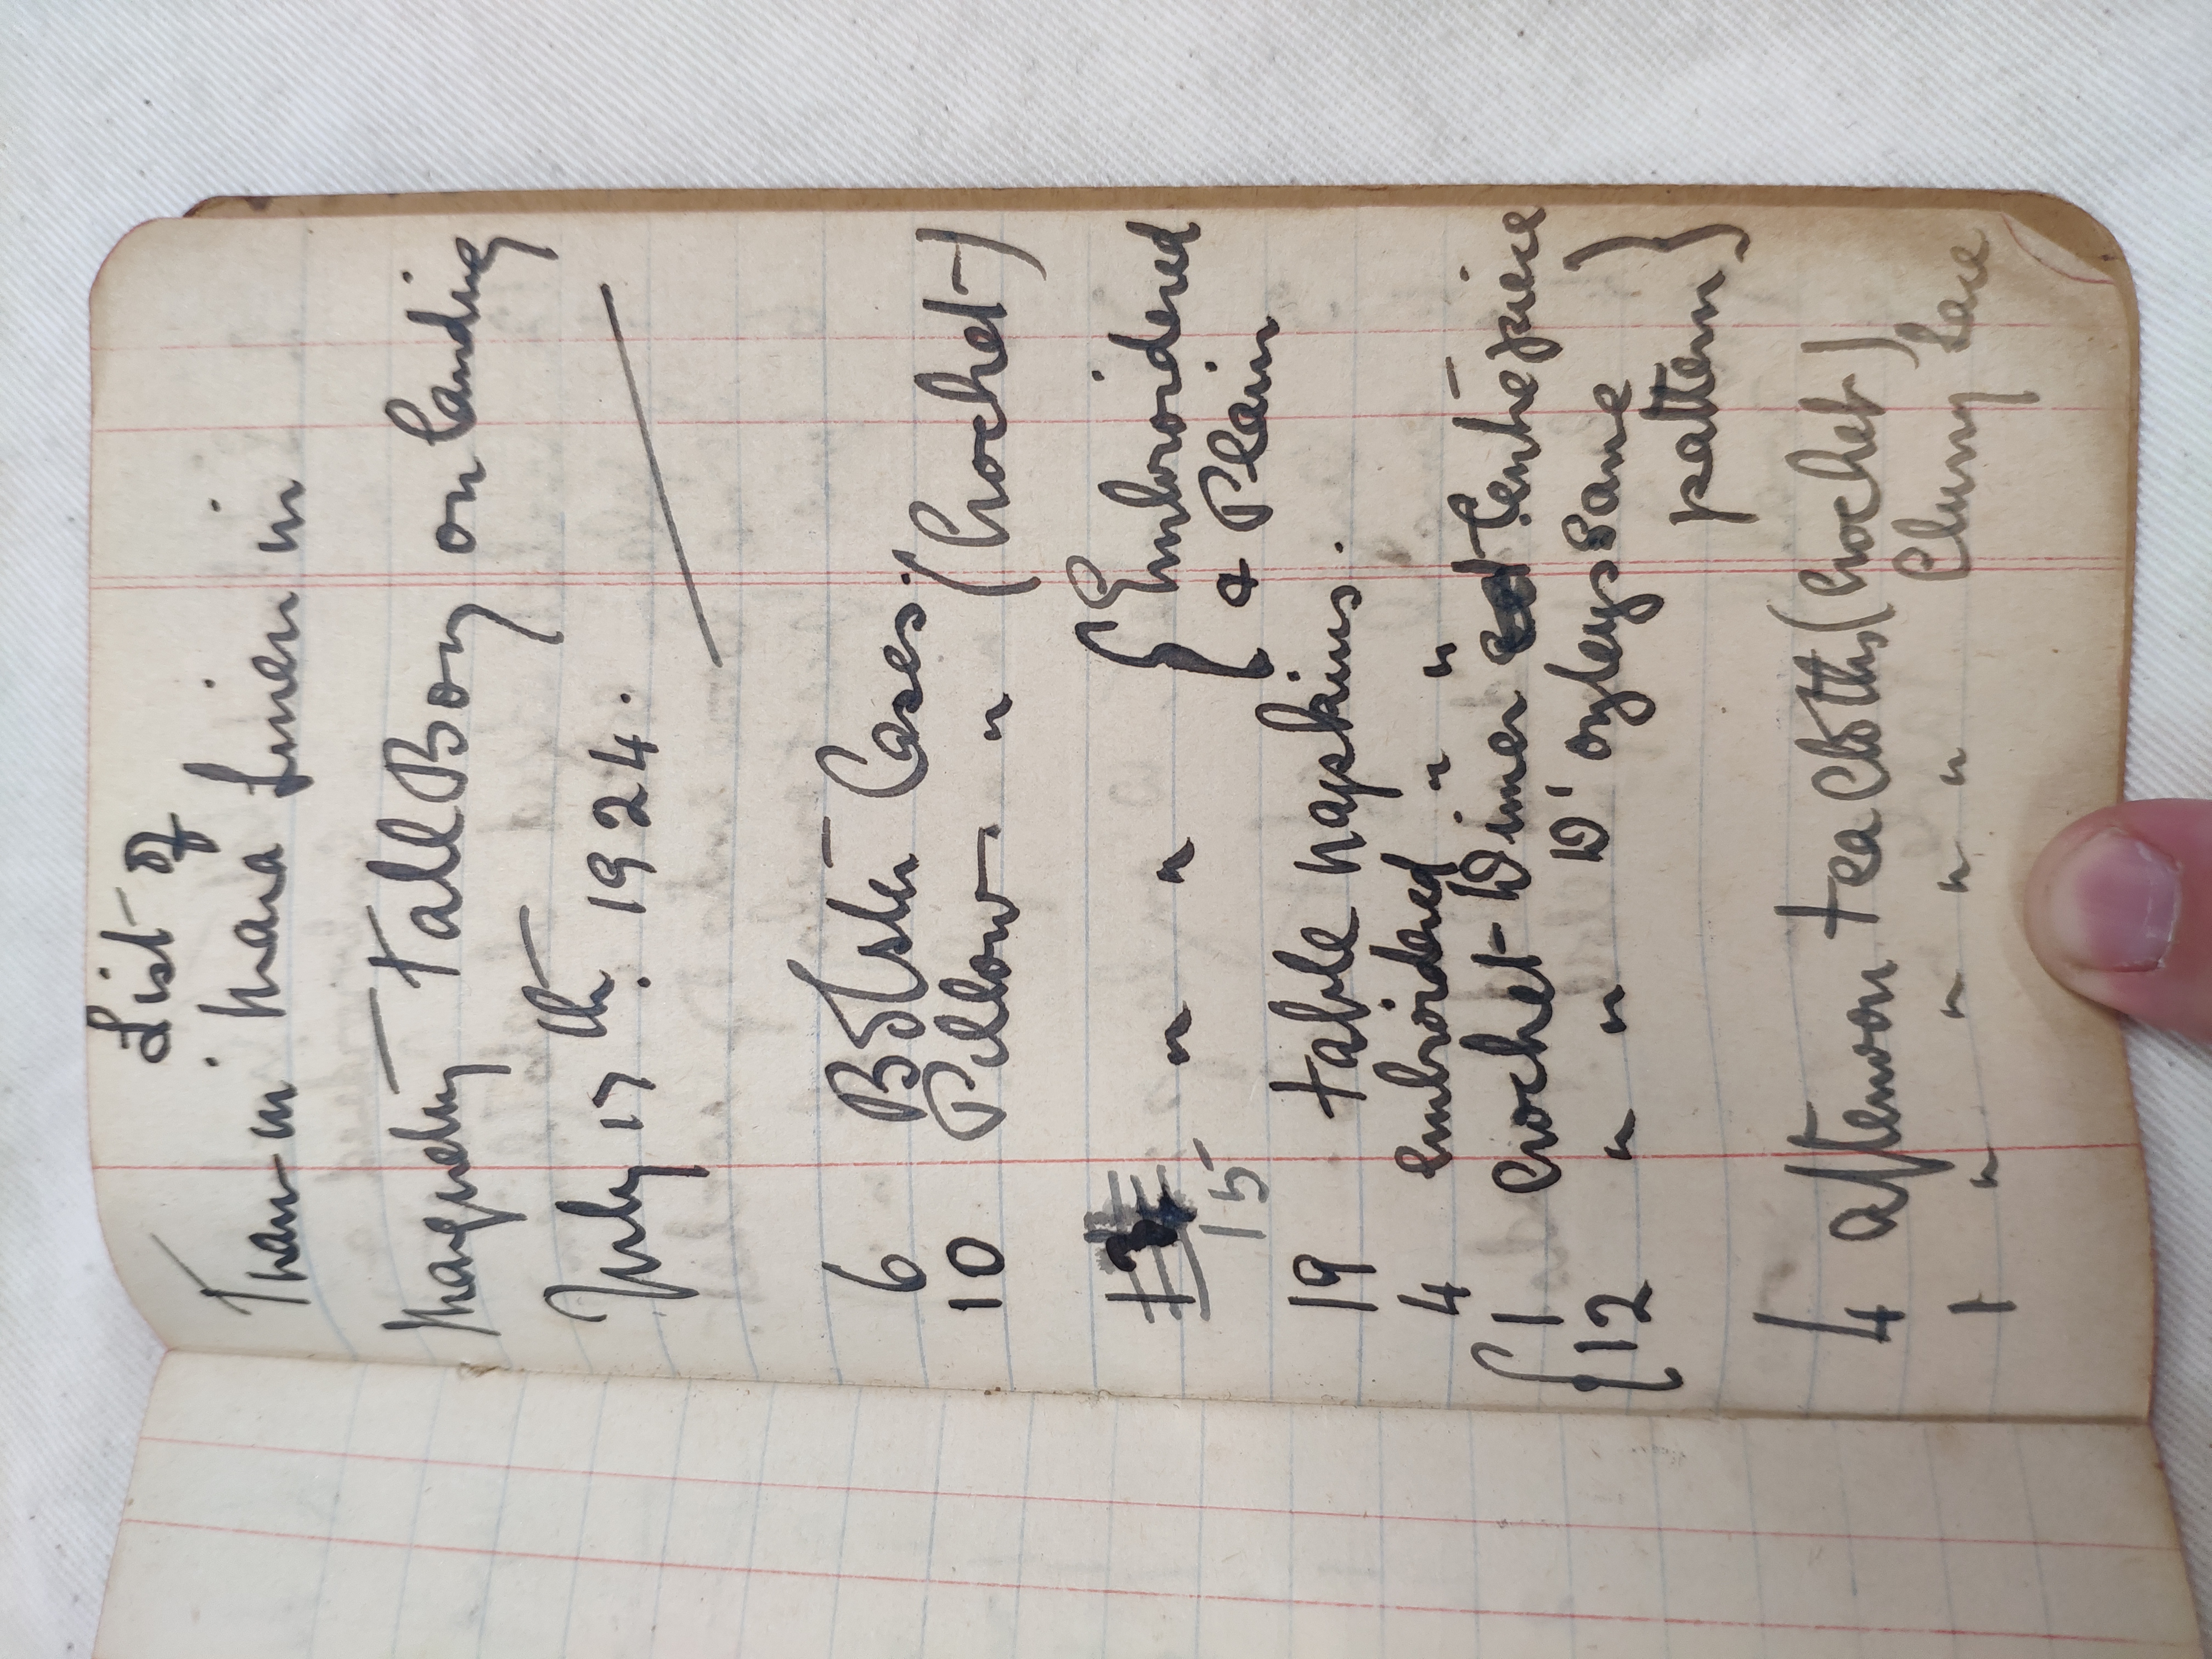 List of
Linen in
Marquetry Tall Boy on landing
July 17th. 1924.
6 Bolster Cases
10 Pillow " (Crochet)
" " { Embroidered
15 & Plain
19 table napkins.
4 embroidered " "
{ 1 crochet Dinner Centre piece }
{ 12 " " D'oyleys same
pattern }
4 afternoon tea cloths (Crochet)
1 " " " " Cluny Lace